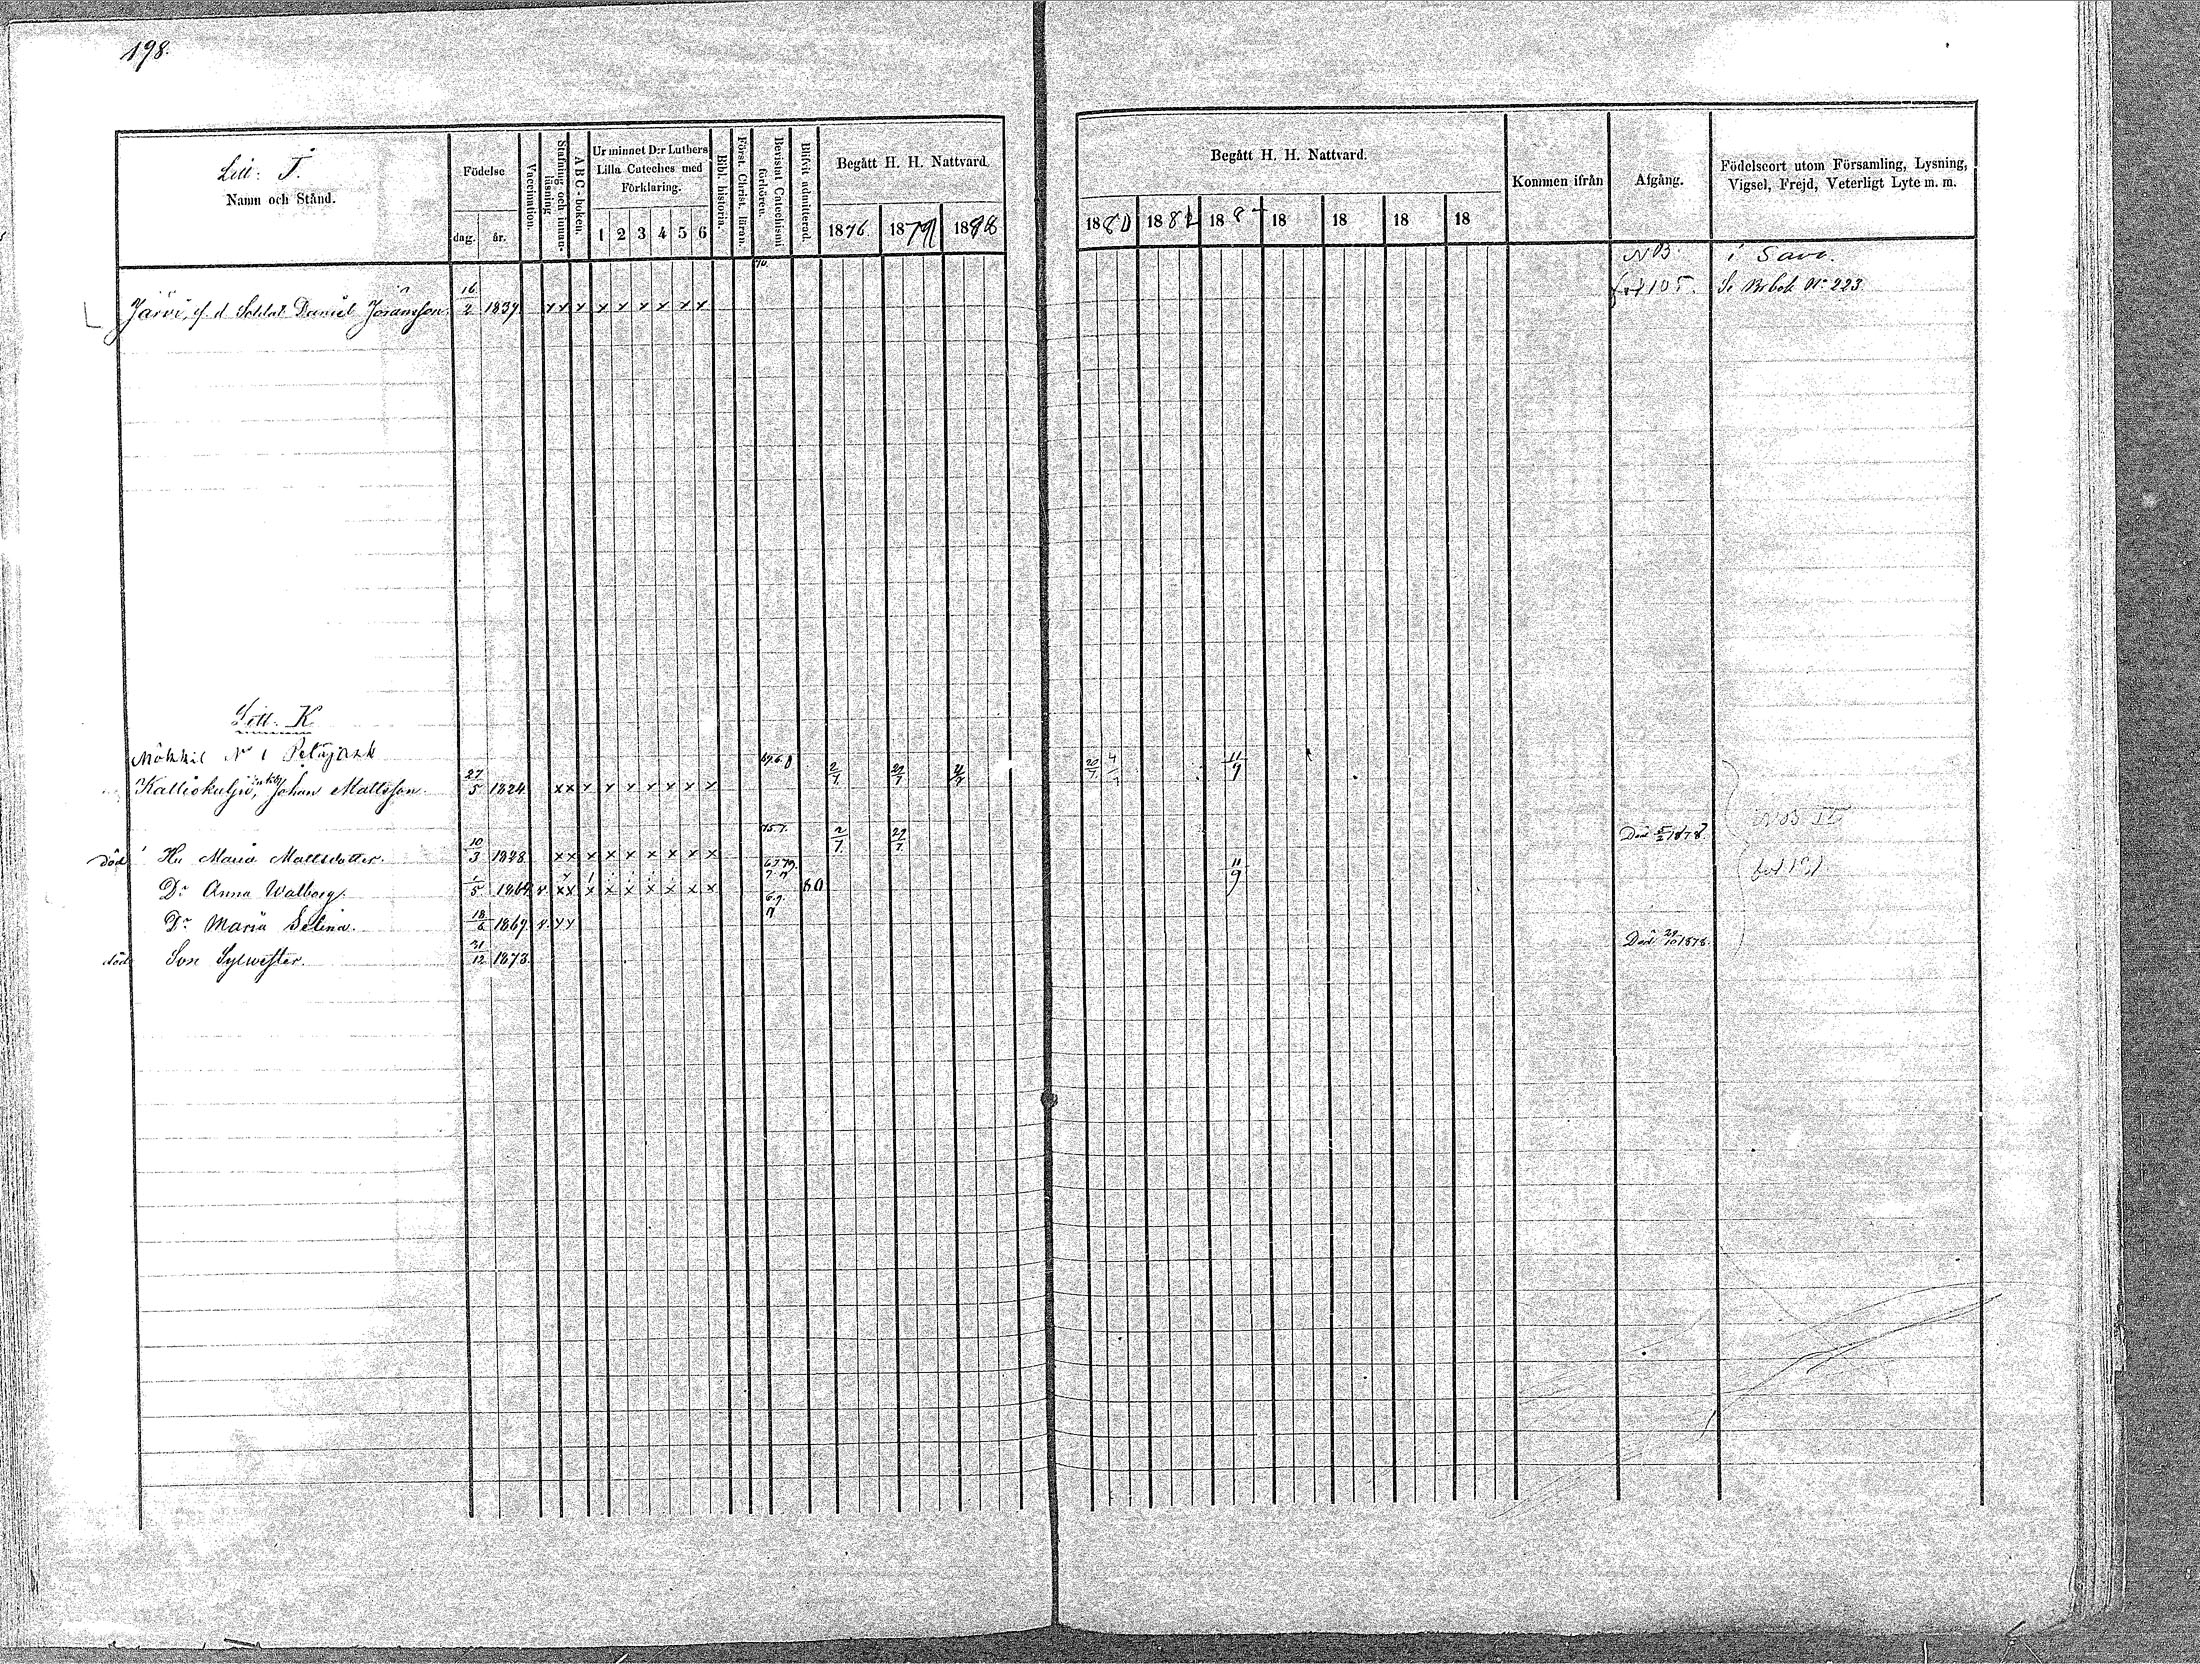 198.
Litt. J.
Namn och Stånd.
Födelse
dag. år.
Vaccination.
Stafning- och innan-läsning
ABC-boken.
Ur minnet D:r Luthers Lilla Cateches med Förklaring.
1 2 3 4 5 6
Bibl. historia.
Först. Christ. läran.
Bevistat Catechismi förhören.
Blifvit admitterad.
Begått H. H. Nattvard.
1876. 1879
Begått H. H. Nattvard.
1880 1882 188 18 18 18 18
Kommen ifrån
Afgång.
Födelseort utom Församling, Lysning, Vigsel, Frejd, Veterligt Lyte m. m.
NB i Savi.
Järvi, f. d Soldat Daniel Jöransson. 16/2 1839 x x x x x x x x x 105. Se Brbok No 223
Litt. K
No 1 Petäjäsk
Kalliokuljo, Johan Mattsson. 27/5 1824 x x x x x x x x x 2/7 29/7 20/7 11/9
död Hu Maria Mattsdotter. 10/3 1828 x x x x x x x x x 75.7. 2/7 29/7 Död 5/2 1878.
Dr Anna Walborg. 1/5 1864 v. x x x x x x x x x 80 11/9
Dr Maria Selina. 18/6 1869. v. x x
död Son Sylwester. 31/12 1873. Död 29/10 1878.